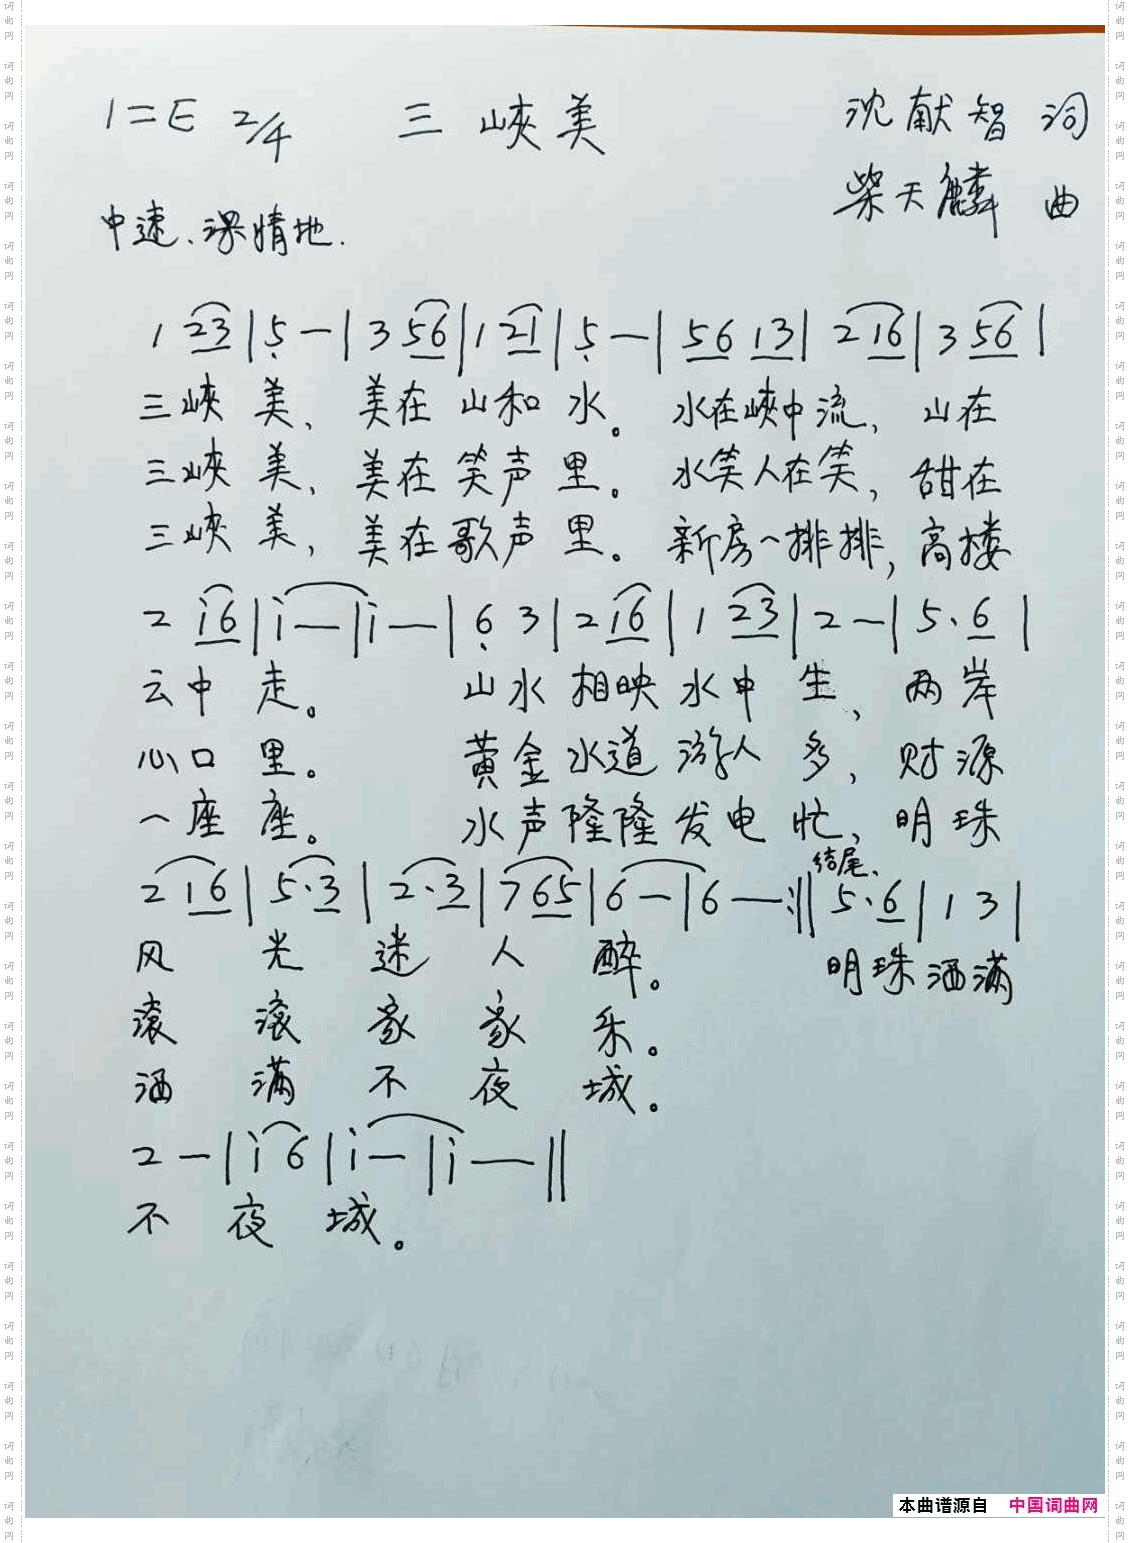 1=E 2/4 三峡美 沈献智 词
柴天麟 曲
中速、深情地.
1 23 | 5 — | 3 56 | 1 21 | 5 — | 56 13 | 2 16 | 3 56 |
三峡 美、 美在 山和 水。 水在峡中流, 山在
三峡 美, 美在 笑声 里。 水笑人在笑, 甜在
三峡 美, 美在歌声 里。 新房一排排, 高楼
2 i6 | i — | i — | 6 3 | 2 i6 | 1 23 | 2 — | 5. 6 |
云中 走。 山水 相映 水中 生, 两岸
心口 里。 黄金 水道 游人 多, 财源
一座 座。 水声隆隆发电 忙, 明珠
结尾.
2 16 | 5·3 | 2·3 | 7 65 | 6 — | 6 — :|| 5·6 | 1 3 |
风 光 迷 人 醉。 明珠洒满
滚 滚 家 家 乐。
洒 满 不 夜 城。
2 — | i 6 | i — | i — ||
不 夜 城。
本曲谱源自 中国词曲网